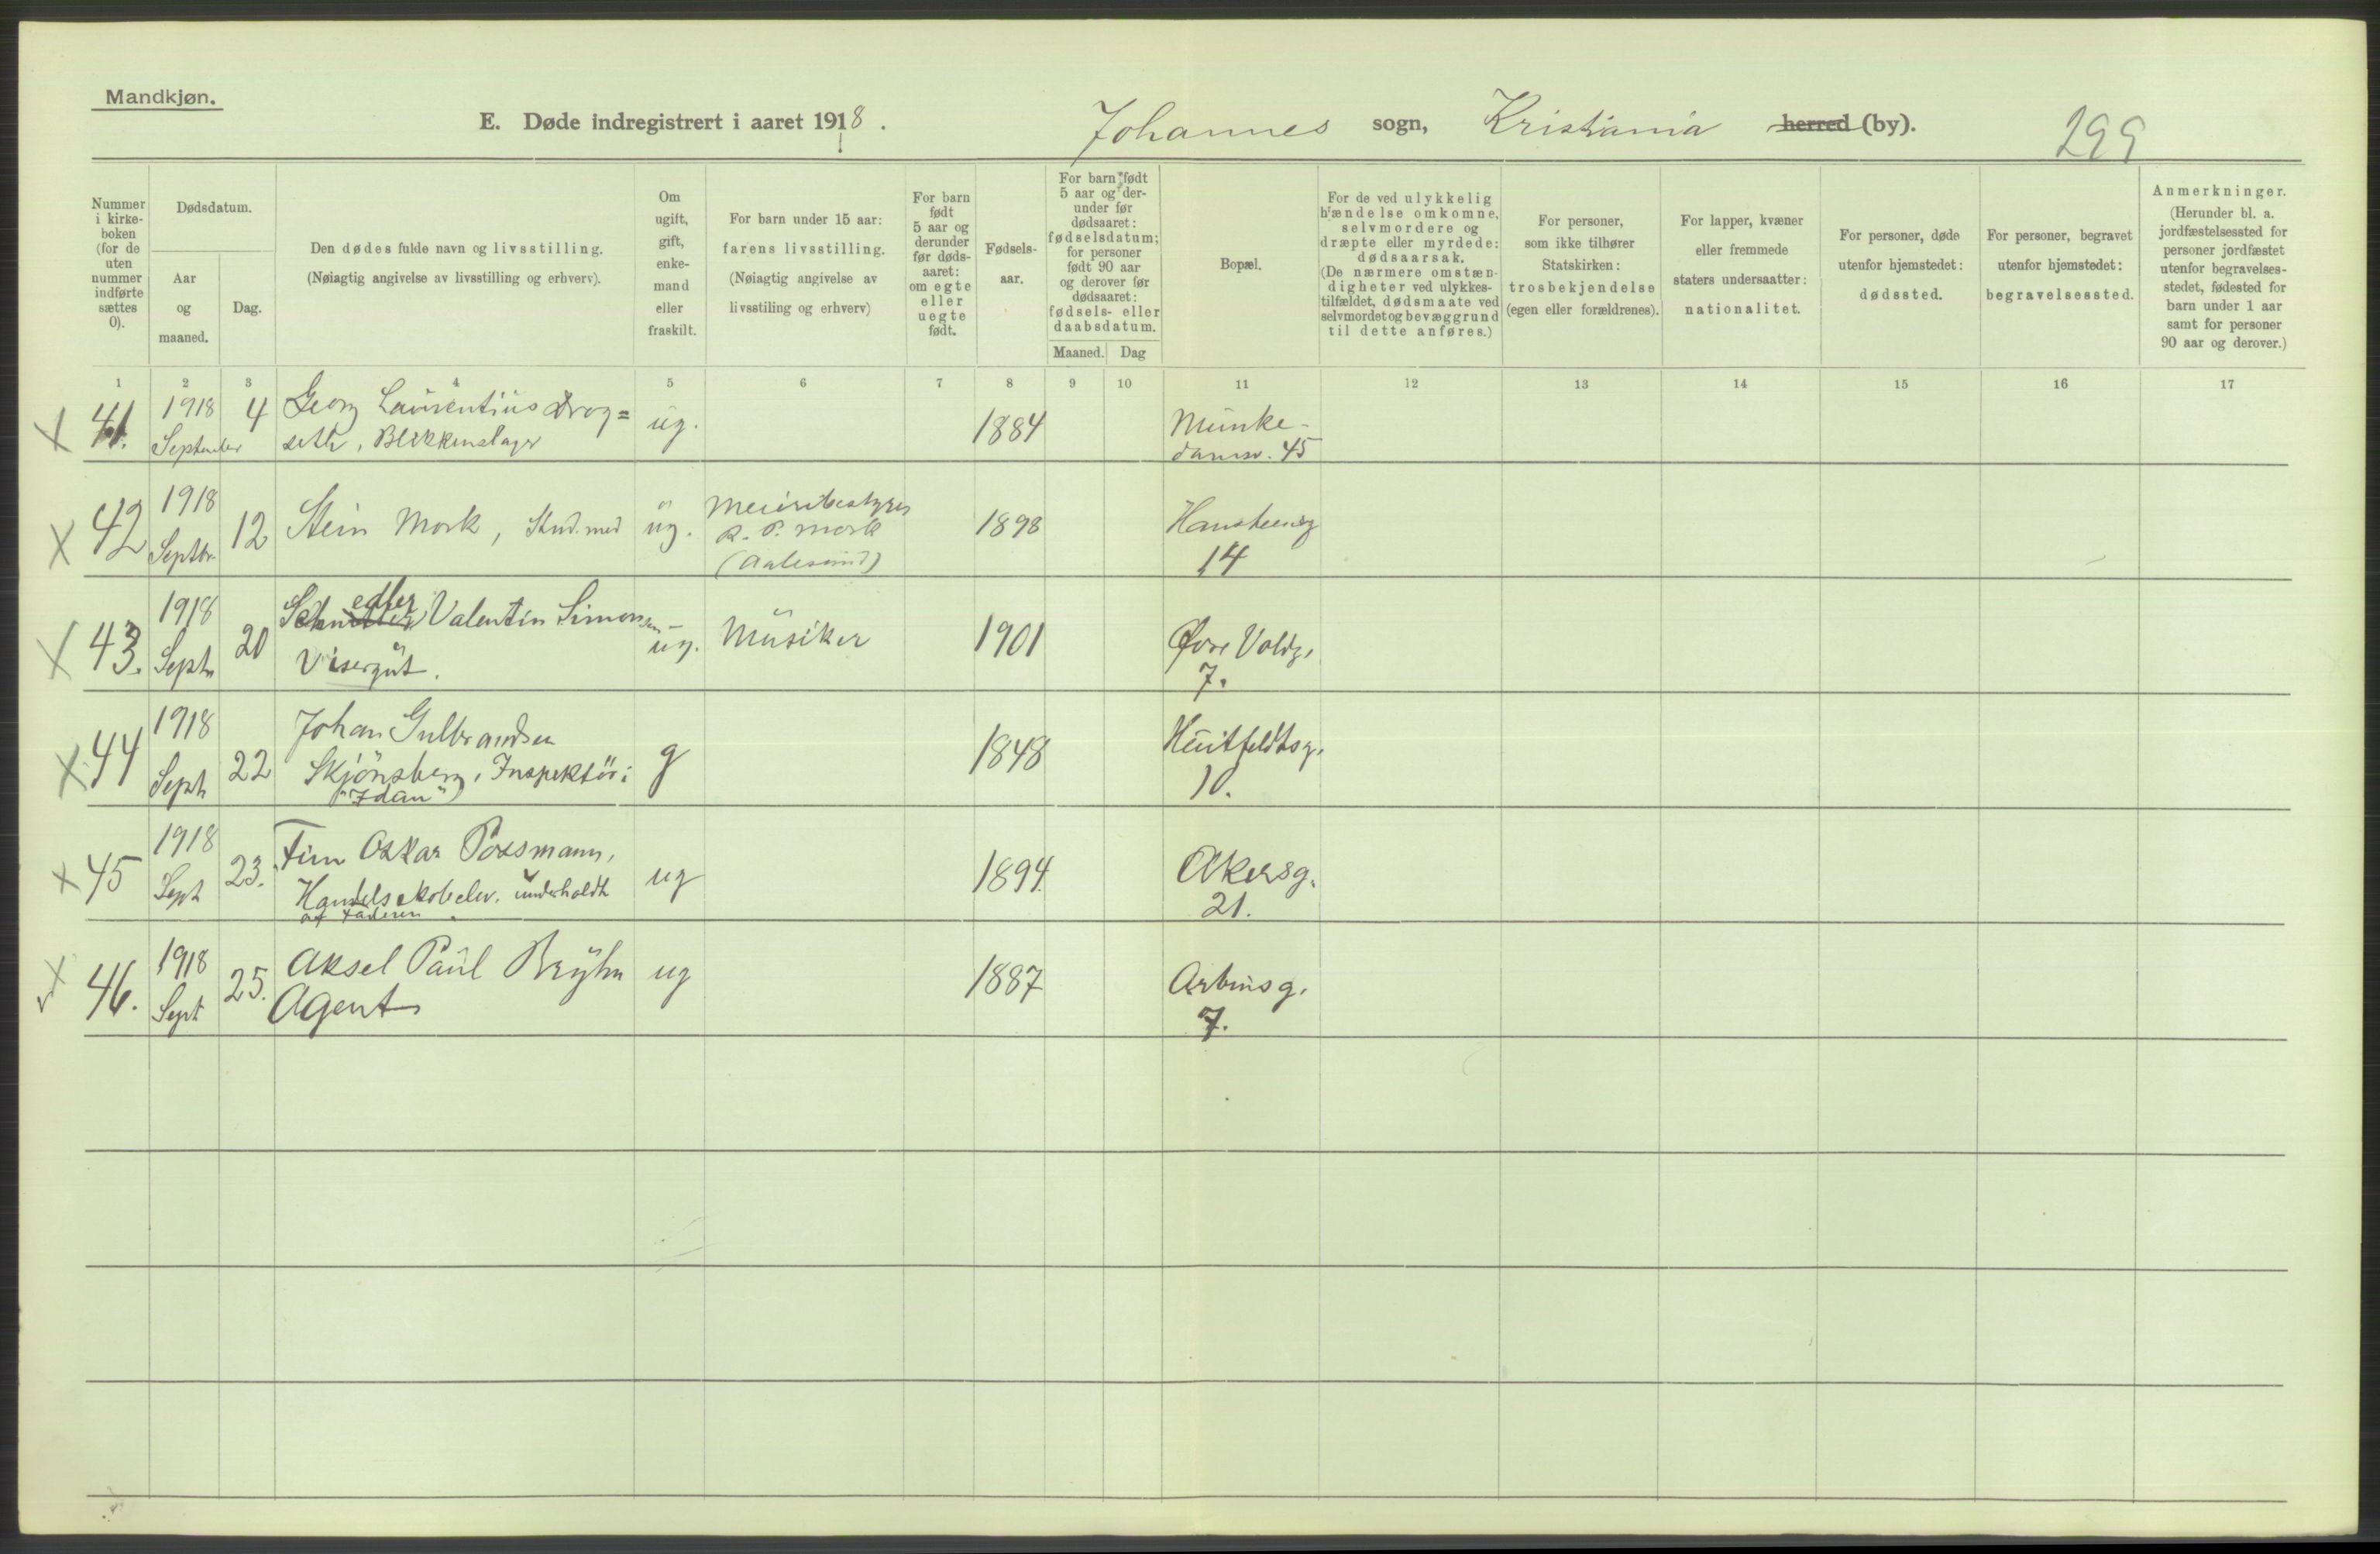 Mandkjøn.
E. Døde indregistrert i aaret 1918.
Johannes sogn, Kristiania herred (by).
299
Nummer i kirke-boken (for de uten nummer indførte sættes 0).
Dødsdatum.
Aar og maaned.
Dag.
Den dødes fulde navn og livsstilling.
(Nøiagtig angivelse av livsstilling og erhverv).
Om ugift, gift, enke-mand eller fraskilt.
For barn under 15 aar:
farens livsstilling.
(Nøiagtig angivelse av
livsstiling og erhverv)
For barn født 5 aar og derunder før døds-aaret: om egte eller uegte født.
Fødsels-aar.
For barn født 5 aar og der-under før dødsaaret: fødselsdatum; for personer født 90 aar og derover før dødsaaret: fødsels- eller daabsdatum.
Maaned.
Dag
Bopæl.
For de ved ulykkelig hændelse omkomne, selvmordere og dræpte eller myrdede: dødsaarsak. (De nærmere omstæn-digheter ved ulykkes-tilfældet, dødsmaate ved selvmordet og bevæggrund til dette anføres.)
For personer, som ikke tilhører Statskirken: trosbekjendelse (egen eller forældrenes).
For lapper, kvæner eller fremmede staters undersaatter: nationalitet.
For personer, døde utenfor hjemstedet: dødssted.
For personer, begravet utenfor hjemstedet: begravelsessted.
Anmerkninger.
(Herunder bl. a. jordfæstelsessted for personer jordfæstet utenfor begravelses-stedet, fødested for barn under 1 aar samt for personer 90 aar og derover.)
1 2 3 4 5 6 7 8 9 10 11 12 13 14 15 16 17
X 41. 1918 September 4 Georg Laurentius Drog=
seth, Blikkenslager ug. 1884 Munke-
damsv. 45
X 42 1918 Septbr. 12 Stein Mork, Stud. med ug. Meieribestyrer
R. P. Mork
(Aalesund) 1898 Hansteensg
14
X 43. 1918 Septr 20 Schnedler Valentin Simonsen
Visergut. ug. Musiker 1901 Øvre Voldg.
7.
X 44 1918 Septr 22 Johan Gulbrandsen
Skjönsberg, Inspektör i
"Idun") g 1848 Huitfeldtsg.
10.
X 45 1918 Sept 23. Finn Oskar Possmann,
Handelsskoleelev. underholdt
af faderen. ug 1894. Akersg.
21.
X 46. 1918 Sept 25. Aksel Paul Bryhn
Agent ug 1887 Arbinsg.
7.